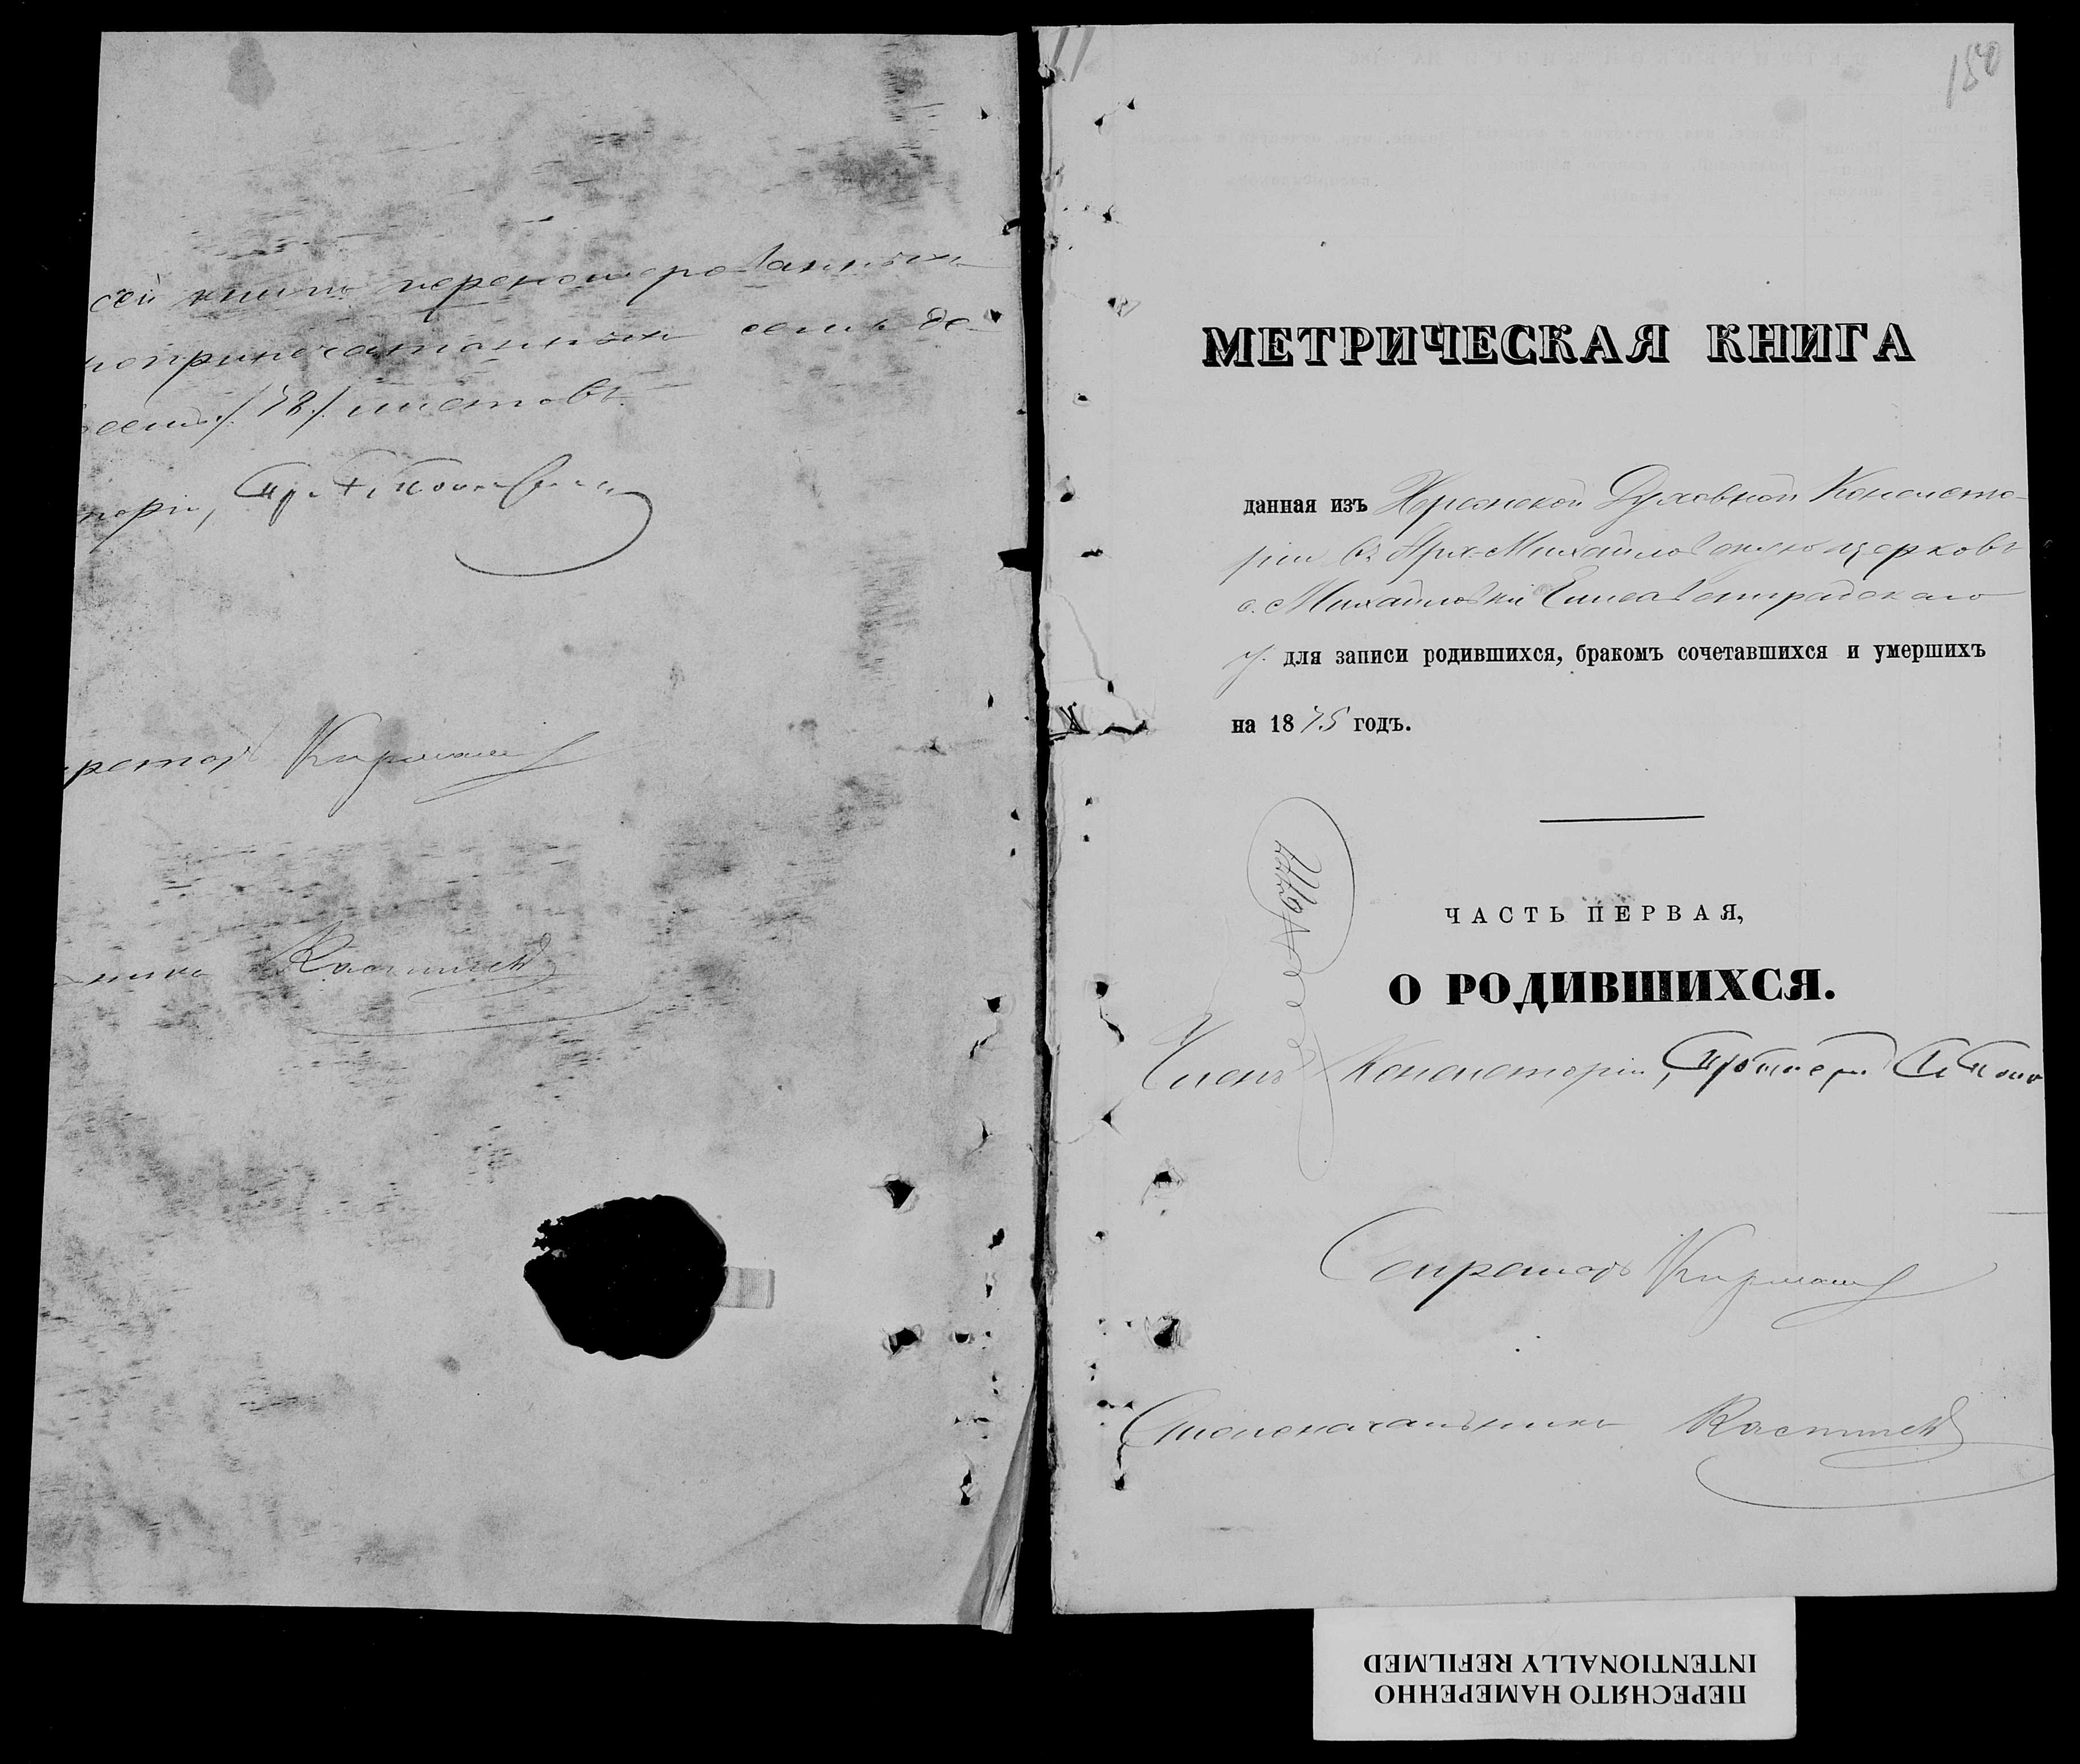 сей книги перенумерованныхъ
припечатанныхъ семь де-
семь /78/ листовъ.
торіи,
кретарь Кирмаш
никъ
150
МЕТРИЧЕСКАЯ КНИГА
данная изъ Херсонской Духовной Консисто-
ріи въ Арх-Михайловскую церковь
с. Михайловки Елисаветградскаго
у. для записи родившихся, бракомъ сочетавшихся и умершихъ
на 1875 годъ.
ЧАСТЬ ПЕРВАЯ,
О РОДИВШИХСЯ.
Членъ Консисторіи, Протоіерей
Секретарь
Столоначальникъ
ПЕРЕСНЯТО НАМЕРЕННО
INTENTIONALLY REFILMED